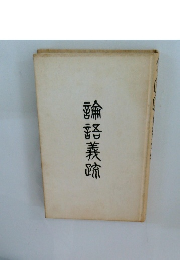 論語義疏